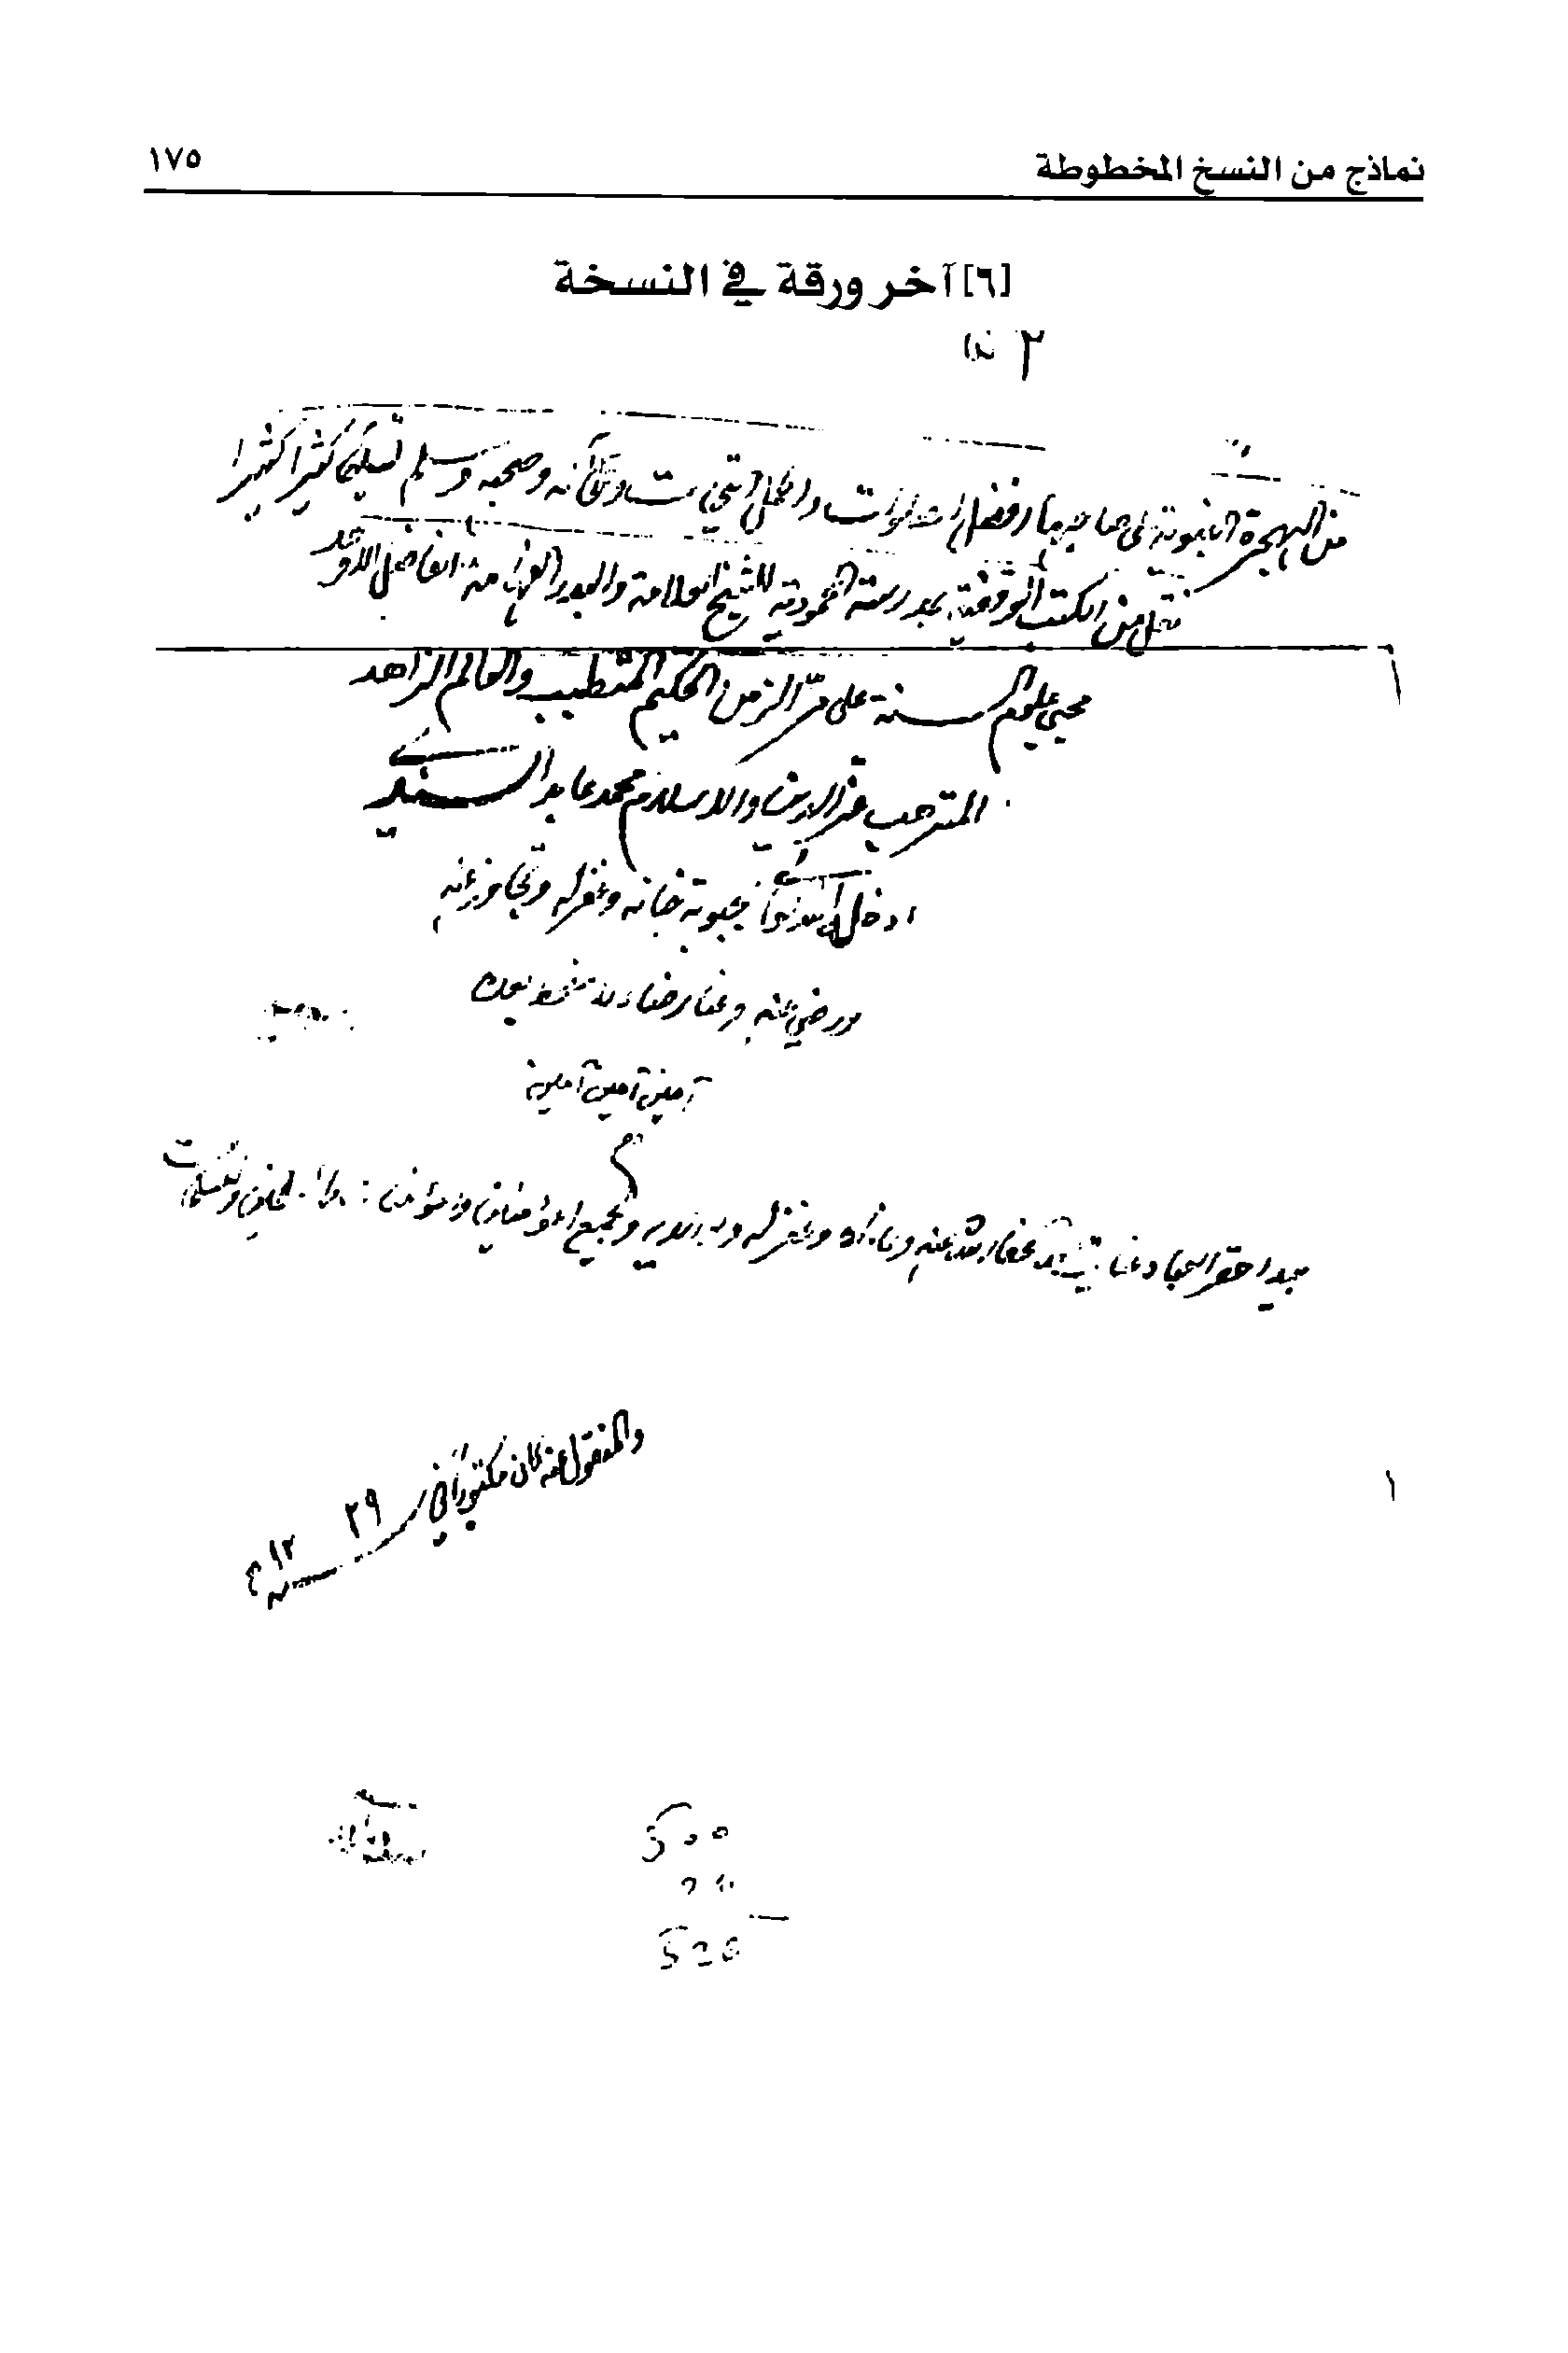 نماذج من النسخ المخطوطة
١٧٥
[٦] آخر ورقة في النسخة
٢
من الهجرة النبوية على صاحبها افضل الصلوات واكمل التحيات وعلى آله وصحبه وسلم تسليما كثيرا كثيرا
نقل من الكتب الوقفية بمدرسة المحمودية للشيخ العلامة والبدر الفهامة الفاضل الاوحد
محيي علوم السنة على مر الزمن الحكيم المتطبب والعالم الزاهد
المترهب عز الدين والاسلام محمد عابد السندي
ادخله الله تعالى بحبوبة جنانه وغفر له وتجاوز عنه
ورضي عنه وعنا رضاء لا سخط بعده
آمين آمين آمين
م
بيد احقر العباد عفا الله عنه وغفر له ولوالديه ولجميع المؤمنين
والمنقول عنه كان مكتوبا في
٢٩
١٢
سنة
500
526